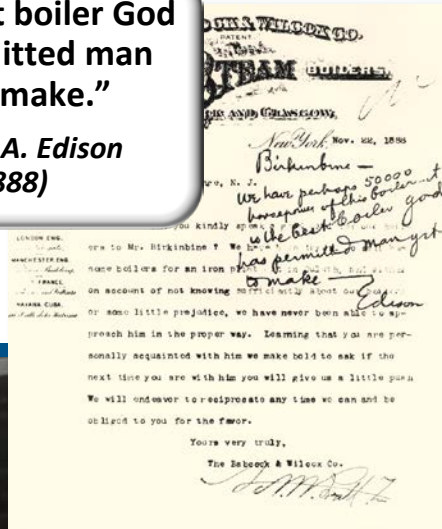 t boiler God
itted man
make.”
A. Edison
888)
COCK & WILCOX CO.
PATENT
STEAM BOILERS,
AND GLASGOW,
New York, Nov. 22, 1888
Birkinbine —
we have perhaps 50000
horsepower of this boiler. it
is the best Boiler god
has permitted man yet
to make —
Edison
N. J.
you kindly
LONDON ENG.
MANCHESTER ENG.
FRANCE.
HAVANA CUBA.
ers to Mr. Birkinbine ? We
some boilers for an iron
on account of not knowing sufficiently about our
or some little prejudice, we have never been able to ap-
proach him in the proper way. Learning that you are per-
sonally acquainted with him we make bold to ask if the
next time you are with him you will give us a little push
We will endeavor to reciprocate any time we can and be
obliged to you for the favor.
Yours very truly,
The Babcock & Wilcox Co.